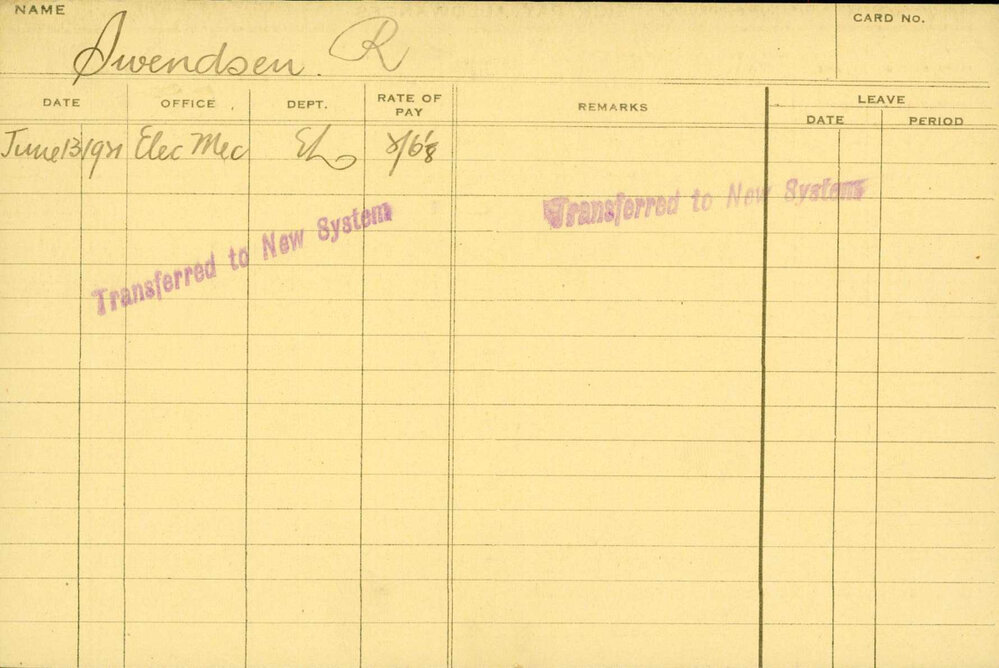 NAME
Swendsen. R
CARD NO.
DATE OFFICE DEPT. RATE OF PAY REMARKS LEAVE
DATE PERIOD
June 13 1921 Elec Mec
Transferred to New System
Transferred to New System